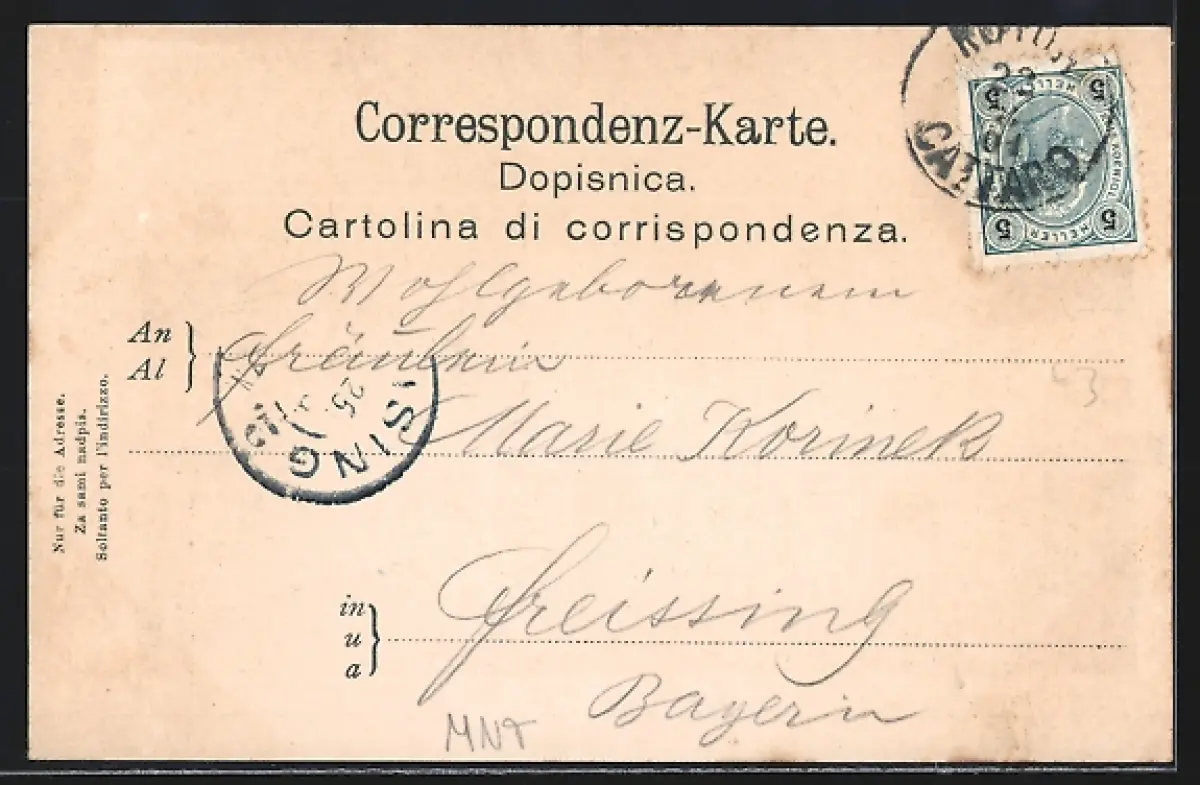 Correspondenz-Karte.
Dopisnica.
Cartolina di corrispondenza.
CATTARO
23
5
5
5
5
HELLER
Wohlgeborenem
An
Al
Fräulein
Marie Korinek
SING
25
in
u
a
Freissing
Bayern
MNT
Nur für die Adresse.
Za sami nadpis.
Soltanto per l'indirizzo.